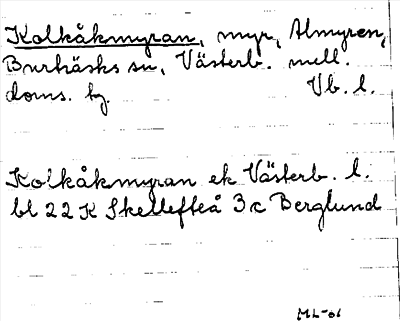 Kolkåkmyran, myr, Almyren,
Burträsks sn, Västerb. mell.
doms. hg. Vb. l.
Kolkåkmyran ek Västerb. l.
bl 22 K Skellefteå 3c Berglund
ML-01